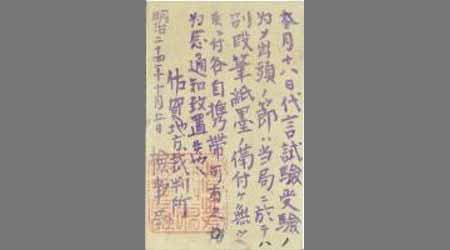 本月十八日代言試験受験ノ
為メ出頭ノ節ハ当局ニ於テハ
別段筆紙墨ノ備付ケ無之
ニ付各自携帯可有之
為念通知致置候也
佐賀地方裁判所
検事局
明治二十四年十月五日